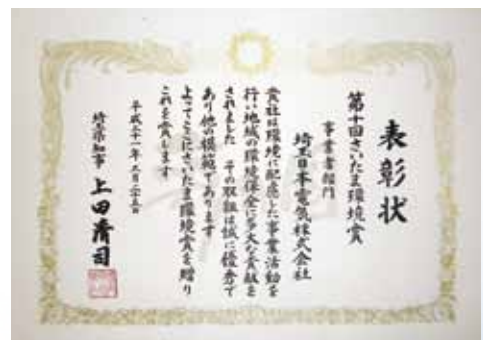 表彰状
第十回さいたま環境賞
事業者部門
埼玉日本電気株式会社
貴社は環境に配慮した事業活動を
行い地域の環境保全に多大な貢献を
されました その取組は誠に優秀で
あり他の模範であります
よってここにさいたま環境賞を贈り
これを賞します
平成二十一年二月二十五日
埼玉県知事 上田清司